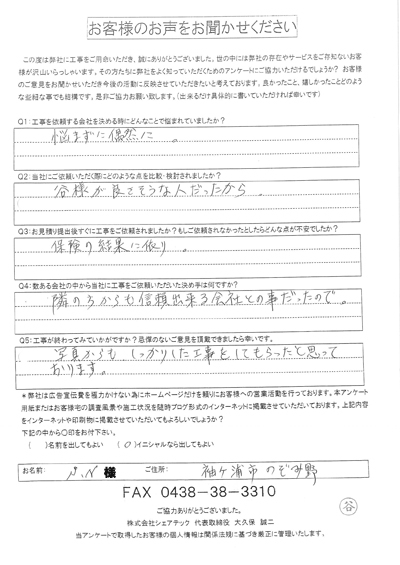 お客様のお声をお聞かせください
この度は弊社に工事をご用命いただき、誠にありがとうございました。世の中には弊社の存在やサービスをご存知ないお客
様が沢山いらっしゃいます。その方たちに弊社をよく知っていただくためのアンケートにご協力いただけるでしょうか？ お客様
のご意見をお聞かせいただき今後の活動に反映させていただきたいと考えております。良かったこと、嬉しかったことどのよう
な些細な事でも結構です。是非ご協力お願い致します。（出来るだけ具体的に書いていただければ幸いです）
Q1：工事を依頼する会社を決める時にどんなことで悩まれていましたか？
悩まずに偶然に。
Q2：当社にご依頼いただく際にどのような点を比較・検討されましたか？
谷様が良さそうな人だったから。
Q3：お見積り提出後すぐに工事をご依頼されましたか？もしご依頼されなかったとしたらどんな点が不安でしたか？
保険の結果に依り。
Q4：数ある会社の中から当社に工事をご依頼いただいた決め手は何ですか？
隣の方からも信頼出来る会社との事だったので。
Q5：工事が終わってみていかがですか？忌憚のないご意見を頂戴できましたら幸いです。
写真からもしっかりした工事をしてもらったと思って
おります。
＊弊社は広告宣伝費を極力かけない為にホームページだけを頼りにお客様への営業活動を行っております。本アンケート
用紙またはお客様宅の調査風景や施工状況を随時ブログ形式のインターネットに掲載させていただいております。上記内容
をインターネットや印刷物に掲載させていただいてもよろしいでしょうか？
下記の中から〇印をお付下さい。
（　）名前を出してもよい　（〇）イニシャルなら出してもよい
お名前： N.N 様 ご住所： 袖ケ浦市のぞみ野
FAX 0438-38-3310
谷
ご協力ありがとうございました。
株式会社シェアテック 代表取締役 大久保 誠二
当アンケートで取得したお客様の個人情報は関係法規に基づき厳正に管理いたします。